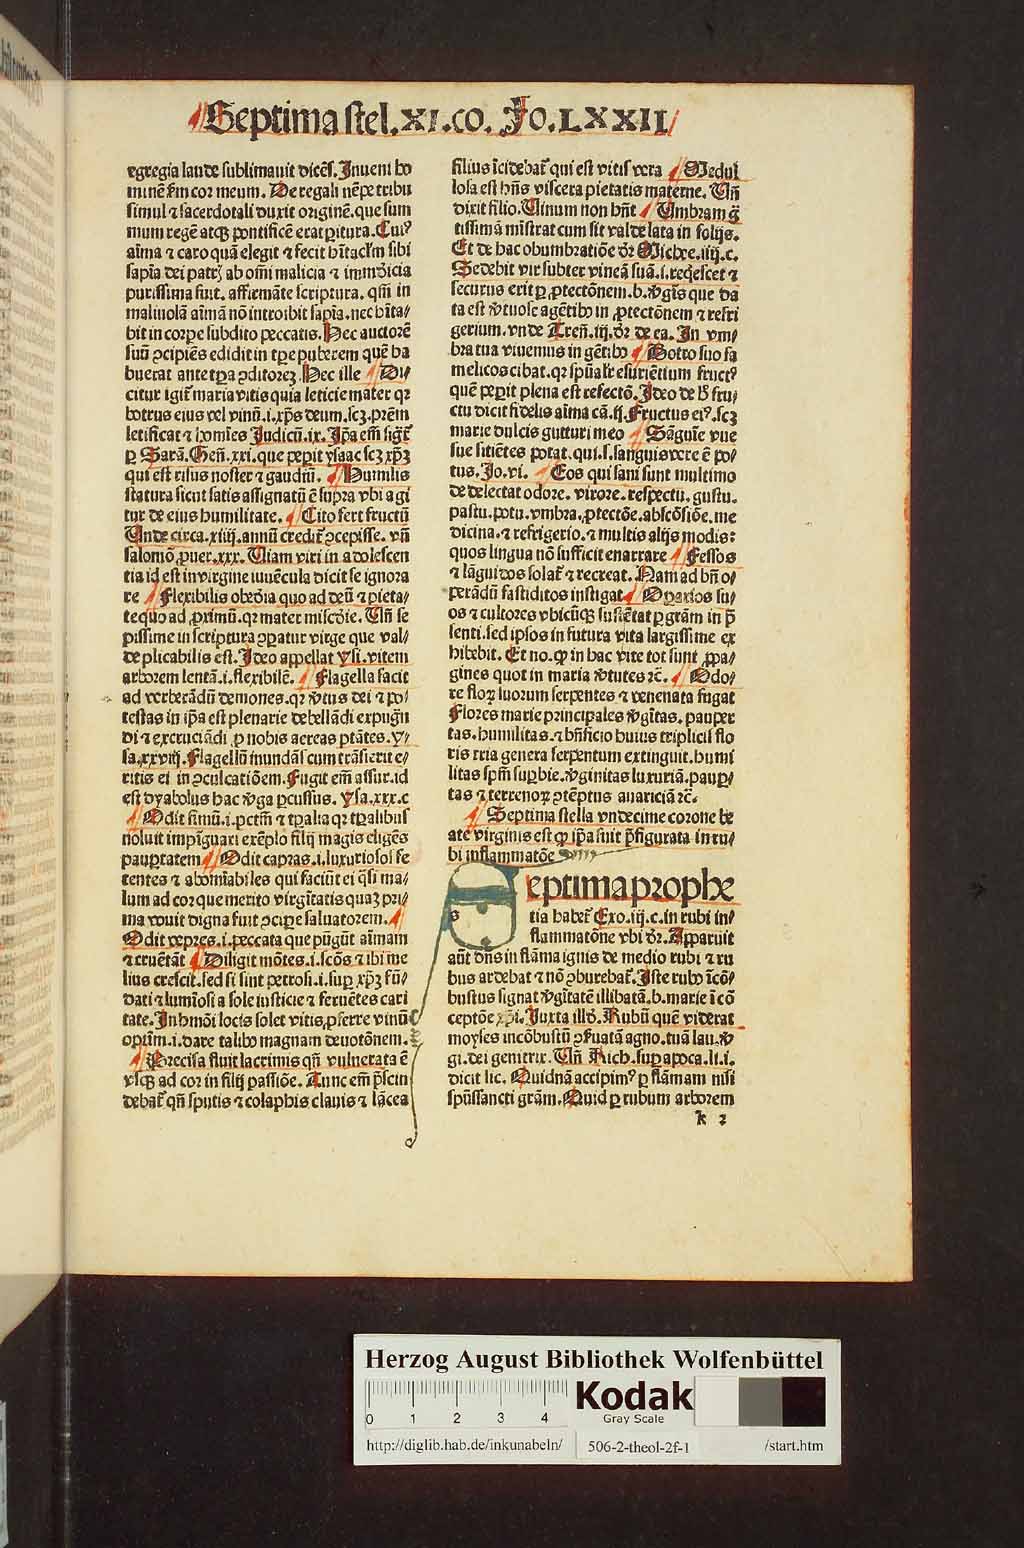 Septima stel.XI.co. Fo.LXXII
egregia laude sublimauit dicēs. Inueni ho
minē ſm cor meum. De regali nēpe tribu
simul ⁊ sacerdotali duxit originē. que sum
mum regē atqꝫ pontificē erat paritura. Cuiꝰ
aīma ⁊ caro quā elegit ⁊ fecit hītaclm sibi
sapīa dei patrꝭ ab omī malicia ⁊ immūdicia
purissima fuit. affirmāte scriptura. qm̄ in
maliuolā aīmā nō introibit sapīa. nec hīta⸗
bit in corpe subdito peccatis. Hec auctorē
suū ꝯcipiēs edidit in tpe puberem quē ha
buerat ante tpa ꝯditoreꝫ. Hec ille Di⸗
citur igit̄ maria vitis quia leticie mater qꝛ
botrus eius vel vinū.i.xp̄s deum.scꝫ.prēm
letificat ⁊ homīes Judicū.ix. Ip̄a em̄ sigt̄
ꝑ Sarā. Geñ.xxi.que peperit ysaac scꝫ xp̄ꝫ
qui est risus noster ⁊ gaudiū. Humilis
statura sicut satis assignatū ē supra vbi agi
tur de eius humilitate. Cito fert fructū
Unde circa.xiiij.annū credit̄ ꝯcepisse. vñ
salomō ꝓuer.xxx. Uiam viri in adolescen
tia id est in virgine iuuēcula dicit se ignora
re Flexibilis obedīa quo ad deū ⁊ pieta⸗
te quo ad ꝓximū. qꝛ mater miscdīe. Uñ se
pissime in scriptura ꝯparatur virge que val⸗
de plicabilis est. Ideo appellat ysi. vitem
arborem lentā.i.flexibilē. Flagella facit
ad verberādū demones. qꝛ v̄tus dei ⁊ po⸗
testas in ip̄a est plenarie debellādi expugñ
di ⁊ excruciādi ꝓ nobis aereas ptātes. y⸗
sa.xxviij. Flagellū inundās cum trāsierit e⸗
ritis ei in ꝯculcatiōem. Fugit em̄ assur.id
est dyabolus hac v̄ga pcussus. ysa.xxx.c
Odit fimū.i.pctm̄ ⁊ tpalia qꝛ tpalibus
noluit impīguari exēplo filij magis eligēs
paupertatem Odit capras.i.luxuriosos fe
tentes ⁊ abomīabiles qui faciūt ei qsi ma⸗
lum ad cor que merito virgītatis quaꝫ pri⸗
ma vouit digna fuit ꝯcipe saluatorem.
Odit vepres.i.peccata que pūgūt aīmam
⁊ cruētāt Diligit mōtes.i.scōs ⁊ ibi me
lius crescit.sed si sint petrosi.i.sup xp̄ꝫ fū⸗
dati ⁊ lumīosi a sole iusticie ⁊ feruētes cari
tate. In hmōi locis solet vitis ꝓferre vinū
optīm.i.dare talibꝰ magnam deuotōnem.
Precisa fluit lacrimis qñ vulnerata ē
vsqꝫ ad cor in filij passiōe. Tunc em̄ prēscin
debat̄ qñ sputis ⁊ colaphis clauis ⁊ lācea
filius īcidebat̄ qui est vitis vera Medul
losa est hñs viscera pietatis materne. Uñ
dixit filio. Uinum non hñt Umbram ḡ
tissimā mīstrat cum sit valde lata in folijs.
Et de hac obumbratiōe dr̄ Michee.iiij.c.
Sedebit vir subter vineā suā.i.reqꝫescet ⁊
securus erit ꝑ ꝓtectōnem.b.v̄gīs que da
ta est v̄tuose agētibꝰ in ꝓtectōnem ⁊ refri
gerium. vnde Treñ.iiij. dr̄ de ea. In vm⸗
bra tua viuemus in gētibꝰ Botro suo fa
melicos cibat. qꝛ spūalr̄ esurientium fructꝰ
quē peperit plena est refectō. Ideo de hº fru⸗
ctu dicit fidelis aīma cā.ij. Fructus eiꝰ.scꝫ
marie dulcis gutturi meo Sāguīe vue
sue sitiētes potat.qui.s.sanguis vere ē po⸗
tus. Jo.vi. Eos qui sani sunt multimo
de delectat odore. virore. respectu. gustu.
pastu. potu. vmbra. ꝓtectōe. abscōsiōe. me
dicina. ⁊ refrigerio. ⁊ multis alijs modis:
quos lingua nō sufficit enarrare Fessos
⁊ lāguidos solat̄ ⁊ recreat. Nam ad bñ o⸗
perādū fastiditos instigat Operarios su⸗
os ⁊ cultores vbicūqꝫ sustētat ꝑ grām in p̄
senti. sed ipsos in futura vita largissime ex
hibebit. Et no. ꝙ in hac vite tot sunt ꝓpa⸗
gines quot in maria v̄tutes ⁊c. Odo⸗
re floꝝ suorum serpentes ⁊ venenata fugat
Flores marie principales v̄gītas. pauper
tas. humilitas. ⁊ bñficio huius triplicis flo
ris tria genera serpentum extinguit. humi
litas spm̄ supbie. v̄ginitas luxuriā. paup⸗
tas ⁊ terrenoꝝ ꝯtēptus auariciā ⁊c.
Septima stella vndecime corone be
ate virginis est ꝙ ip̄a fuit p̄figurata in ru⸗
bi inflammatōe
s
eptima prophe
tia habet̄ Exo.iij.c.in rubi in⸗
flammatōne vbi dr̄. Apparuit
aūt dñs in flāma ignis de medio rubi ⁊ ru
bus ardebat ⁊ nō ꝯburebat̄. Iste rubꝰ īcō⸗
bustus signat v̄gītatē illibatā.b.marie ī cō
ceptōe xp̄i. Iuxta illd̄. Rubū quē viderat
moyses incōbustū ꝯseruatā agno. tuā lau. v̄
gi. dei genitrix. Uñ Rich. sup apoca. li.i.
dicit sic. Quidnā accipimꝰ ꝑ flāmam nisi
spūssancti grām. Quid ꝑ rubum arborem
k 2
Herzog August Bibliothek Wolfenbüttel
0 1 2 3 4
Kodak
Gray Scale
http://diglib.hab.de/inkunabeln/ 506-2-theol-2f-1 /start.htm